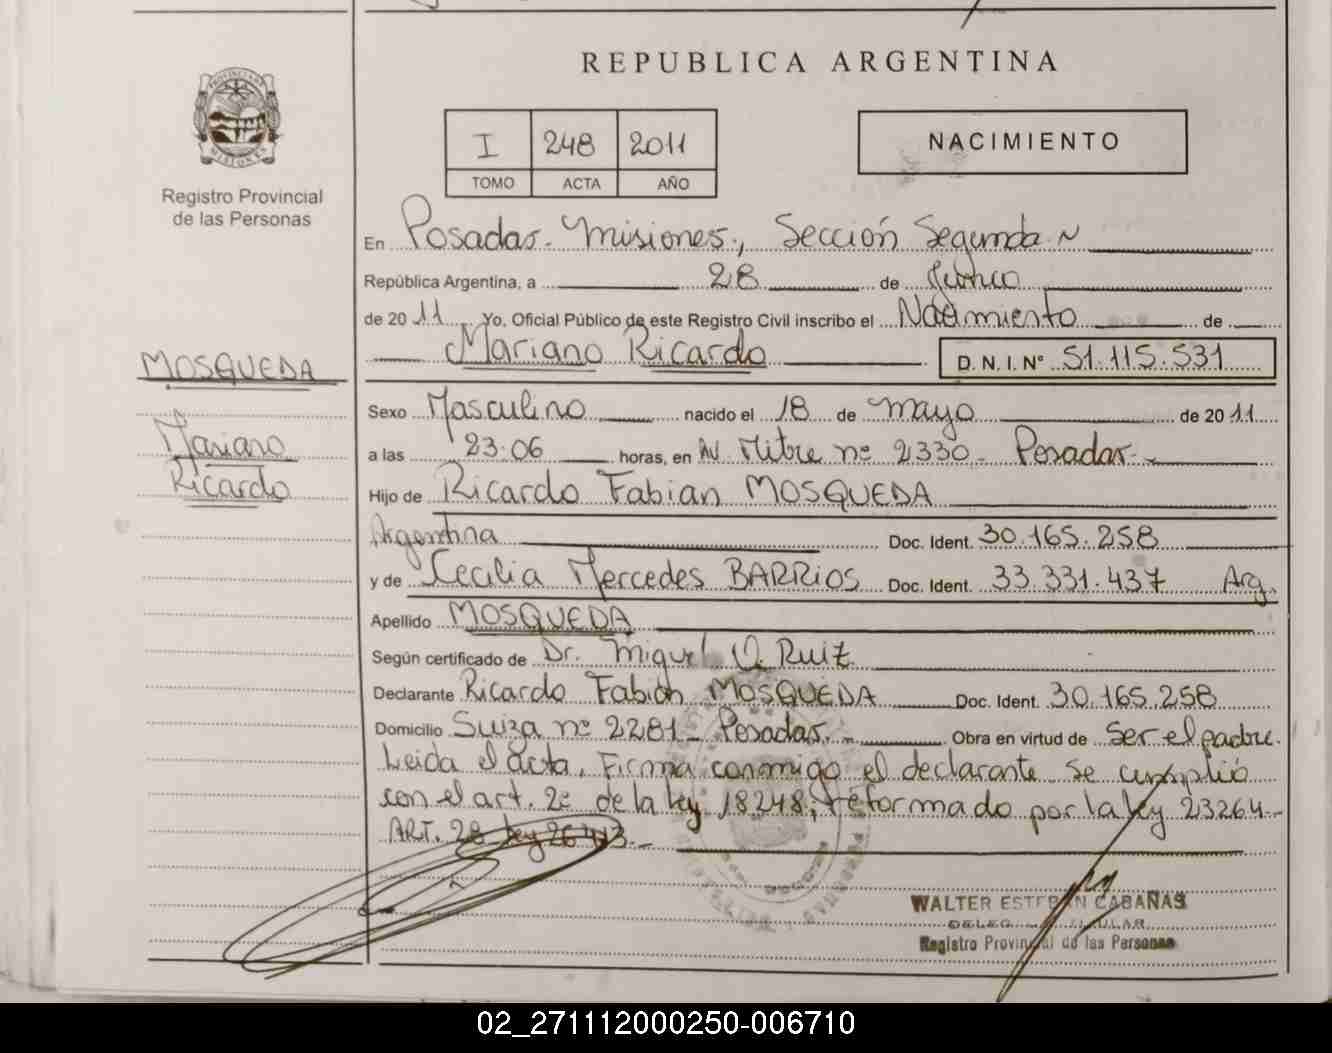 REPUBLICA ARGENTINA
I 248 2011
TOMO ACTA AÑO
NACIMIENTO
Registro Provincial
de las Personas
MOSQUEDA
Mariano
Ricardo
En Posadas. Misiones., Sección Segunda
República Argentina, a 28 de Junio
de 2011 Yo, Oficial Público de este Registro Civil inscribo el Nacimiento de
Mariano Ricardo D. N. I. Nº 51.115.531
Sexo Masculino nacido el 18 de mayo de 2011
a las 23.06 horas, en Av Mitre nº 2330 - Posadas.-
Hijo de Ricardo Fabian MOSQUEDA
Argentina Doc. Ident. 30.165.258
y de Cecilia Mercedes BARRIOS Doc. Ident. 33.331.437 Arg.
Apellido MOSQUEDA
Según certificado de Dr. Miguel O. Ruiz
Declarante Ricardo Fabián MOSQUEDA Doc. Ident. 30.165.258
Domicilio Suiza nº 2281 - Posadas.- Obra en virtud de Ser el padre.
Leida el acta, Firma conmigo el declarante se cumplió
con el art. 2º de la ley 18248, reformado por la ley 23264.-
ART. 28 ley 26413.-
WALTER ESTEBAN CABAÑAS
Registro Provincial de las Personas
02_271112000250-006710